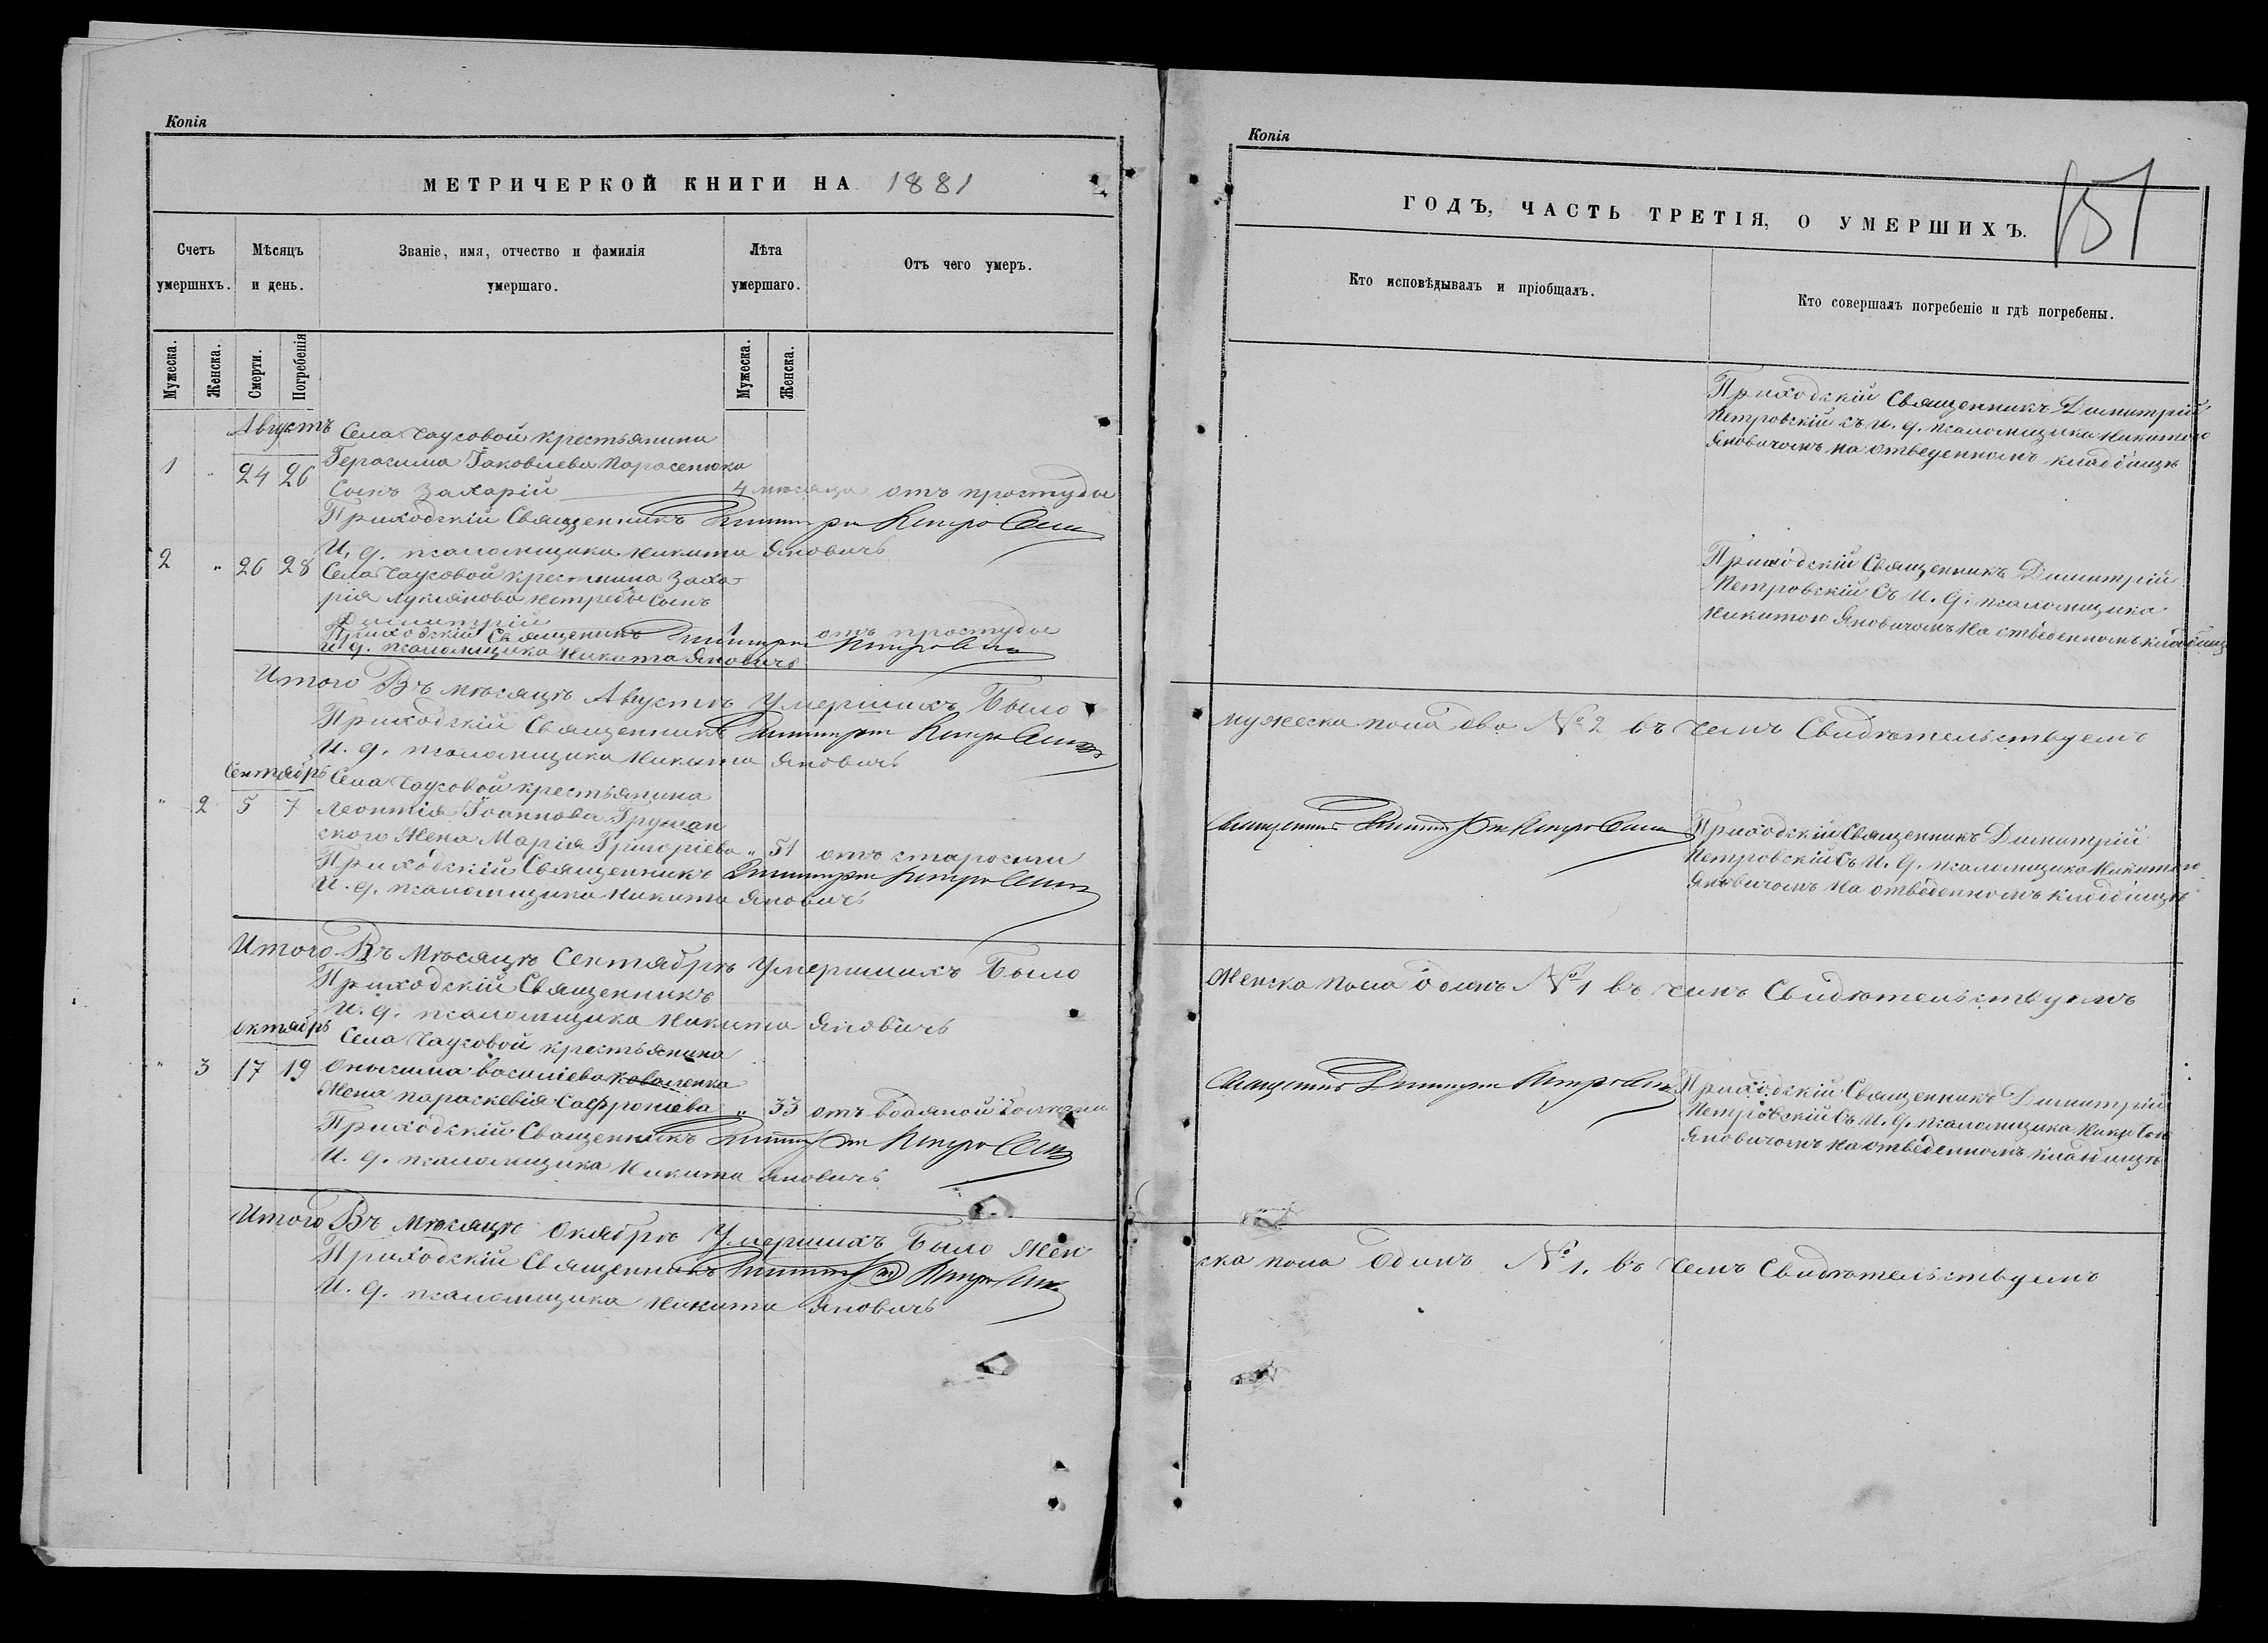 Копія
МЕТРИЧЕРКОЙ КНИГИ НА 1881
Счетъ умершихъ.
Мѣсяцъ и день.
Званіе, имя, отчество и фамилія умершаго.
Лѣта умершаго.
Отъ чего умеръ.
Мужеска.
Женска.
Смерти.
Погребенія
Мужеска.
Женска.
Августъ
Села Чаусовой крестьянина
1 " 24 26 Герасима Іаковлева Парасенюка
Сынъ Захарій 4 мѣсяца отъ простуды
Приходскій Священникъ Димитрій Петровскій
И. д. псаломщика Никита Яновичъ
2 " 26 28 Села Чаусовой крестьянина Заха-
рія Лукіянова Нетребы Сынъ
Димитрій 1 отъ простуды
Приходскій Священникъ Димитрій Петровскій
И д. псаломщика Никита Яновичъ
Итого Въ мѣсяцѣ Августѣ Умершихъ Было
Приходскій Священникъ Димитрій Петровскій
И. д. псаломщика Никита Яновичъ
Сентябрь
Села Чаусовой крестьянина
" 2 5 7 Леонтія Іоаннова Грушан
ского Жена Марія Григоріева " 51 отъ старости
Приходскій Священникъ Димитрій Петровскій
И. д. псаломщика Никита Яновичъ
Итого Въ Мѣсяцѣ Сентябрѣ Умершихъ Было
Приходскій Священникъ
И. д. псаломщика Никита Яновичъ
октябрь
Села Чаусовой крестьянина
" 3 17 19 Онисима Василіева Коваленка
Жена Параскевія Софроніева " 33 отъ водяной болѣзни
Приходскій Священникъ Димитрій Петровскій
И. д. псаломщика Никита Яновичъ
Итого Въ Мѣсяцѣ Окябрѣ Умершихъ Было Жен
Приходскій Священникъ Димитрій Петровскій
И. д. псаломщика Никита Яновичъ
Копія
ГОДЪ, ЧАСТЬ ТРЕТІЯ, О УМЕРШИХЪ.
151
Кто исповѣдывалъ и пріобщалъ.
Кто совершалъ погребеніе и гдѣ погребены.
Приходскій Священникъ Димитрій
Петровскій съ и. д. псаломщика Никитою
Яновичомъ на отведенномъ кладбищѣ
Приходскій Священникъ Димитрій
Петровскій Съ И. д. псаломщика
Никитою Яновичомъ На отведенномъ кладбищѣ
мужеска пола два № 2 въ чемъ Свидѣтельствуемъ
Священникъ Димитрій Петровскій
Приходскій Священникъ Димитрій
Петровскій Съ И. д. псаломщика Никитою
Яновичомъ На отведенномъ кладбищѣ
Женска пола одинъ № 1 въ чемъ Свидѣтельствуемъ
Священникъ Димитрій Петровскій
Приходскій Священникъ Димитрій
Петровскій Съ И. д. псаломщика Никитою
Яновичомъ На отведенномъ кладбищѣ
ска пола Одинъ № 1. въ чемъ Свидѣтельствуемъ